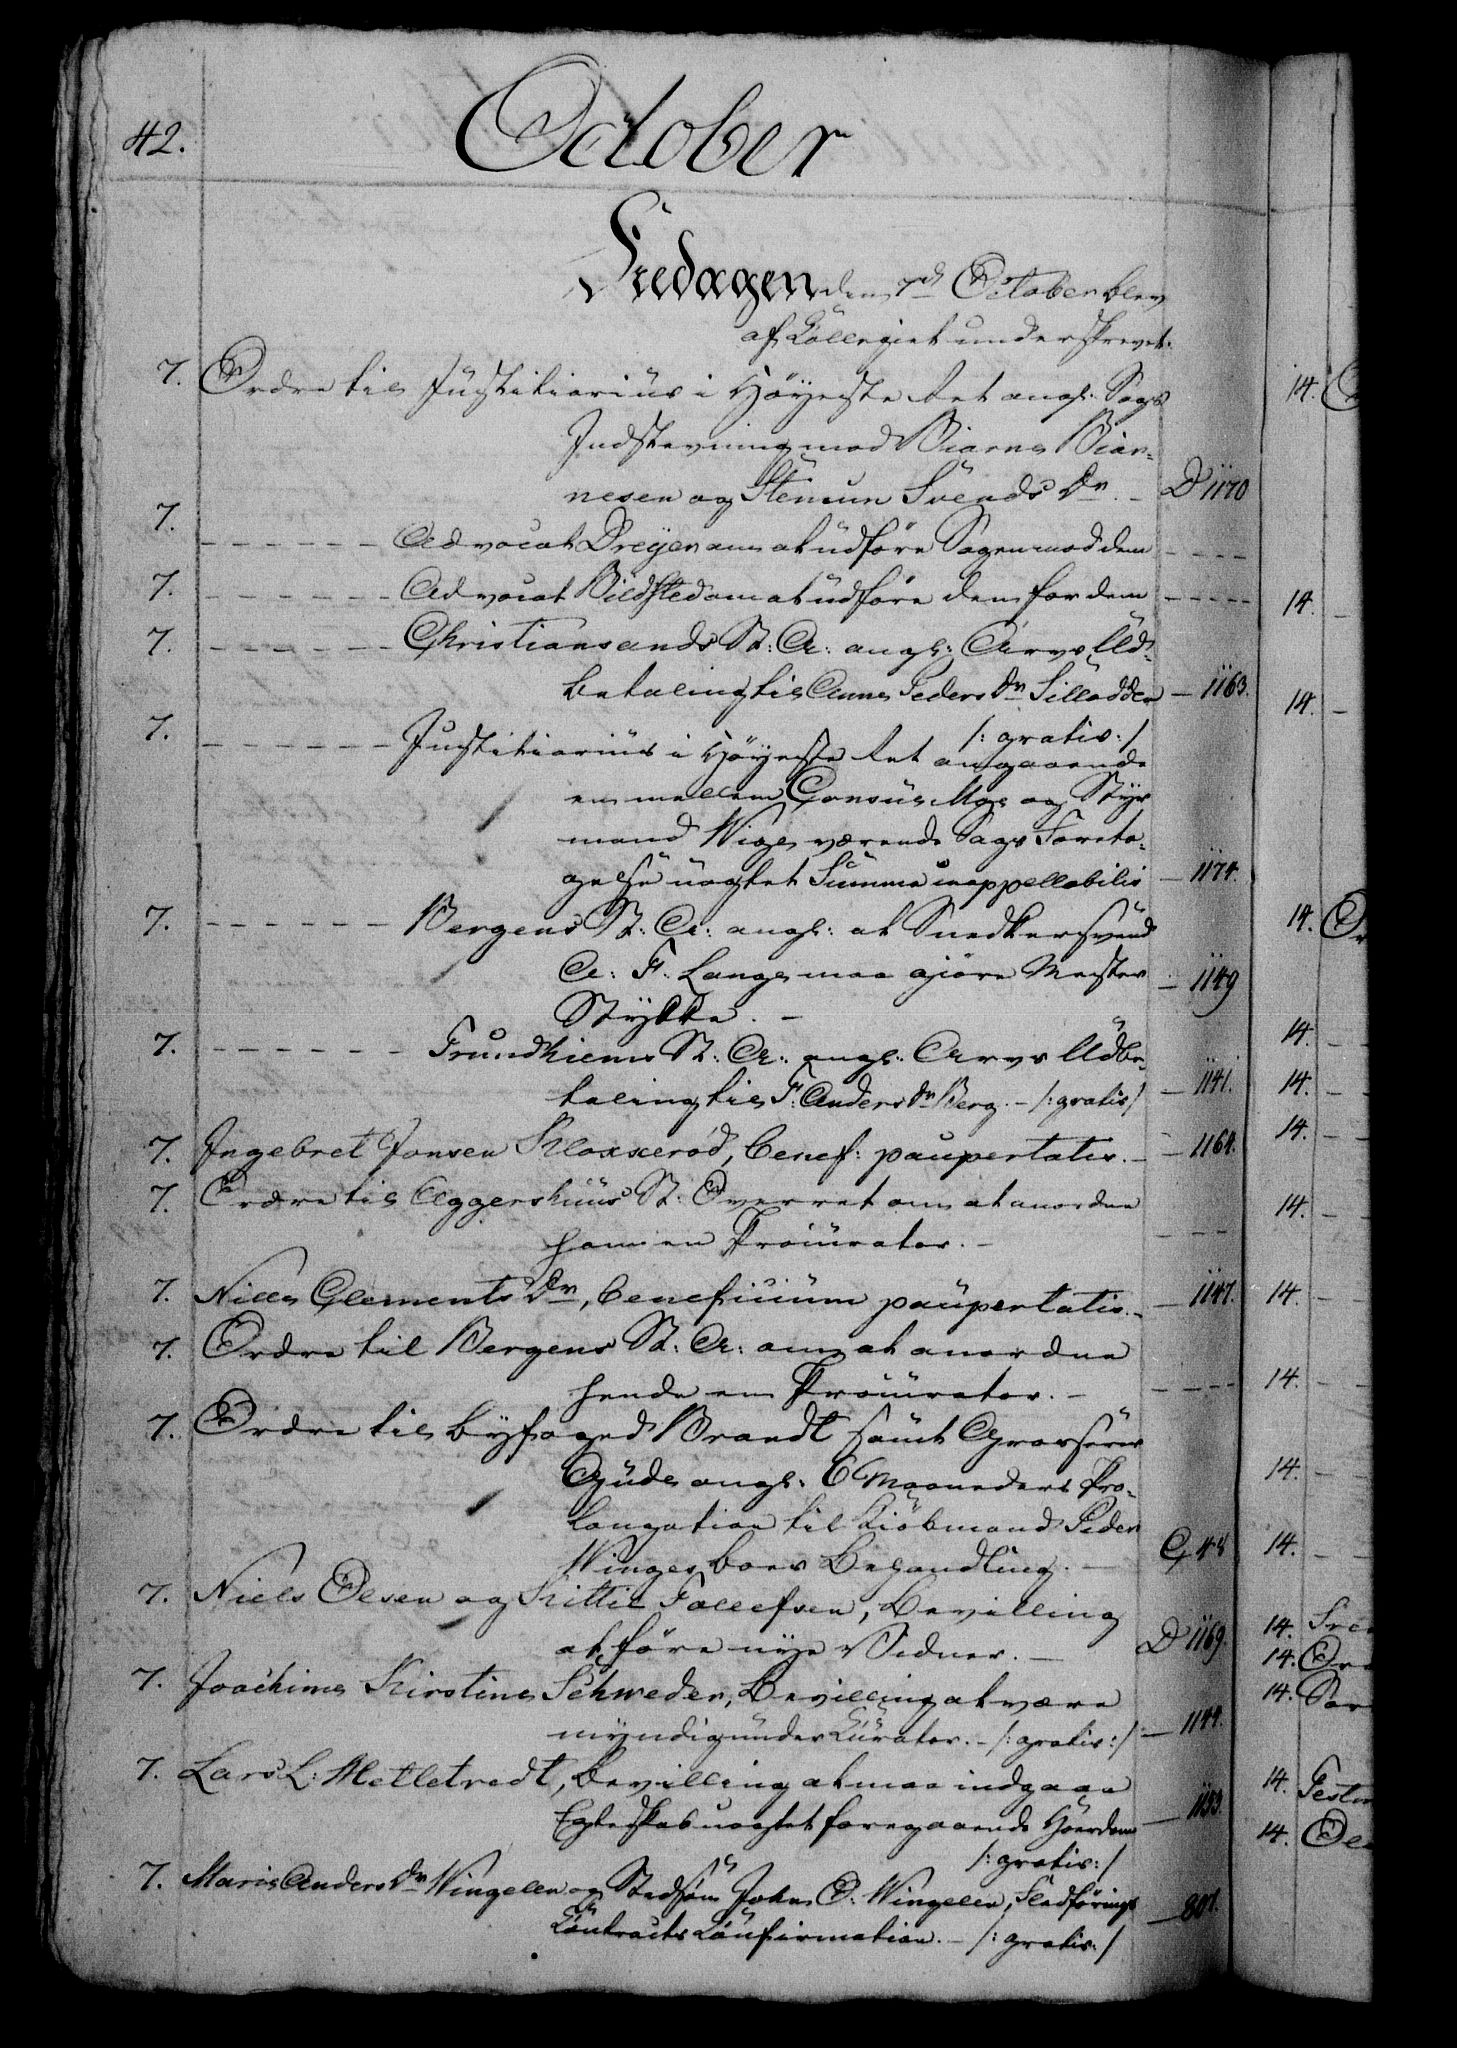 42.
October
Fredagen den 7de October blev
af Collegiet underskrevet.
7. Ordre til Justitiarius i Höyeste Ret angl: Sags
Indstevning mod Biarne Biar-
nesen og Steinun Svends Dr. - D 1170
7. - - - - - - Advocat Dreyer om at udföre Sagen mod dem - - - -
7. - - - - - - Advocat Bildsted om at udföre den for dem - - - - -
7. - - - - - - Christiansands St: A: angl: Arvs Ud-
betaling til Anne Peders Dr Sillodden - 1163.
/: gratis :/
7. - - - - - - Justitiarius i Höyeste Ret angaaende
en mellem Consul Moe og Styr
mand Wige værende Sags Foreta-
gelse uagtet Summa inappellabilis - 1174.
7. - - - - - - Bergens St: A: angl: at Snedkersvend
A: F. Lange maa gjöre Mester
Stykke. - - 1149
7. - - - - - - Trundhiems St: A: angl: Arvs Udbe-
taling til F: Anders Dr Berg. - /: gratis / - 1141.
7. Ingebret Jonsen Kloxeröd, benef: paupertatis. - - 1164.
7. Ordre til Aggershuus St: Overret om at anordne
ham en Procurator. - - - -
7. Niels Clements Dr, beneficium paupertatis. - 1147.
7. Ordre til Bergens St: A: om at anordne
hende en Procurator. - - - - -
7. Ordre til Byfoged Brandt samt Grosserer
Gude angl: 6 Maaneders Pro-
longation til Kiöbmand Peder
Winges boes Behandling. - G 48
7. Niels Olsen og Kittil Tollefsen, Bevilling
at före nye Vidner. - D 1169.
7. Joachime Kirstine Schweder, Bevilling at være
myndig under Curator. - /: gratis :/ - 1144.
7. Lars L: Metletvedt, Bevilling at maa indgaae
Egteskab uagtet foregaaende Hoerdom - 1153.
/: gratis :/
7. Marie Anders Dr Wingelen og Stedsön John O: Wingelen, Fledförings
Contracts Confirmation. - /: gratis :/ - 801.
14.
14.
14.
14. Or
14.
14.
14.
14.
14.
14.
14.
14.
14.
14.
14.
14.
14.